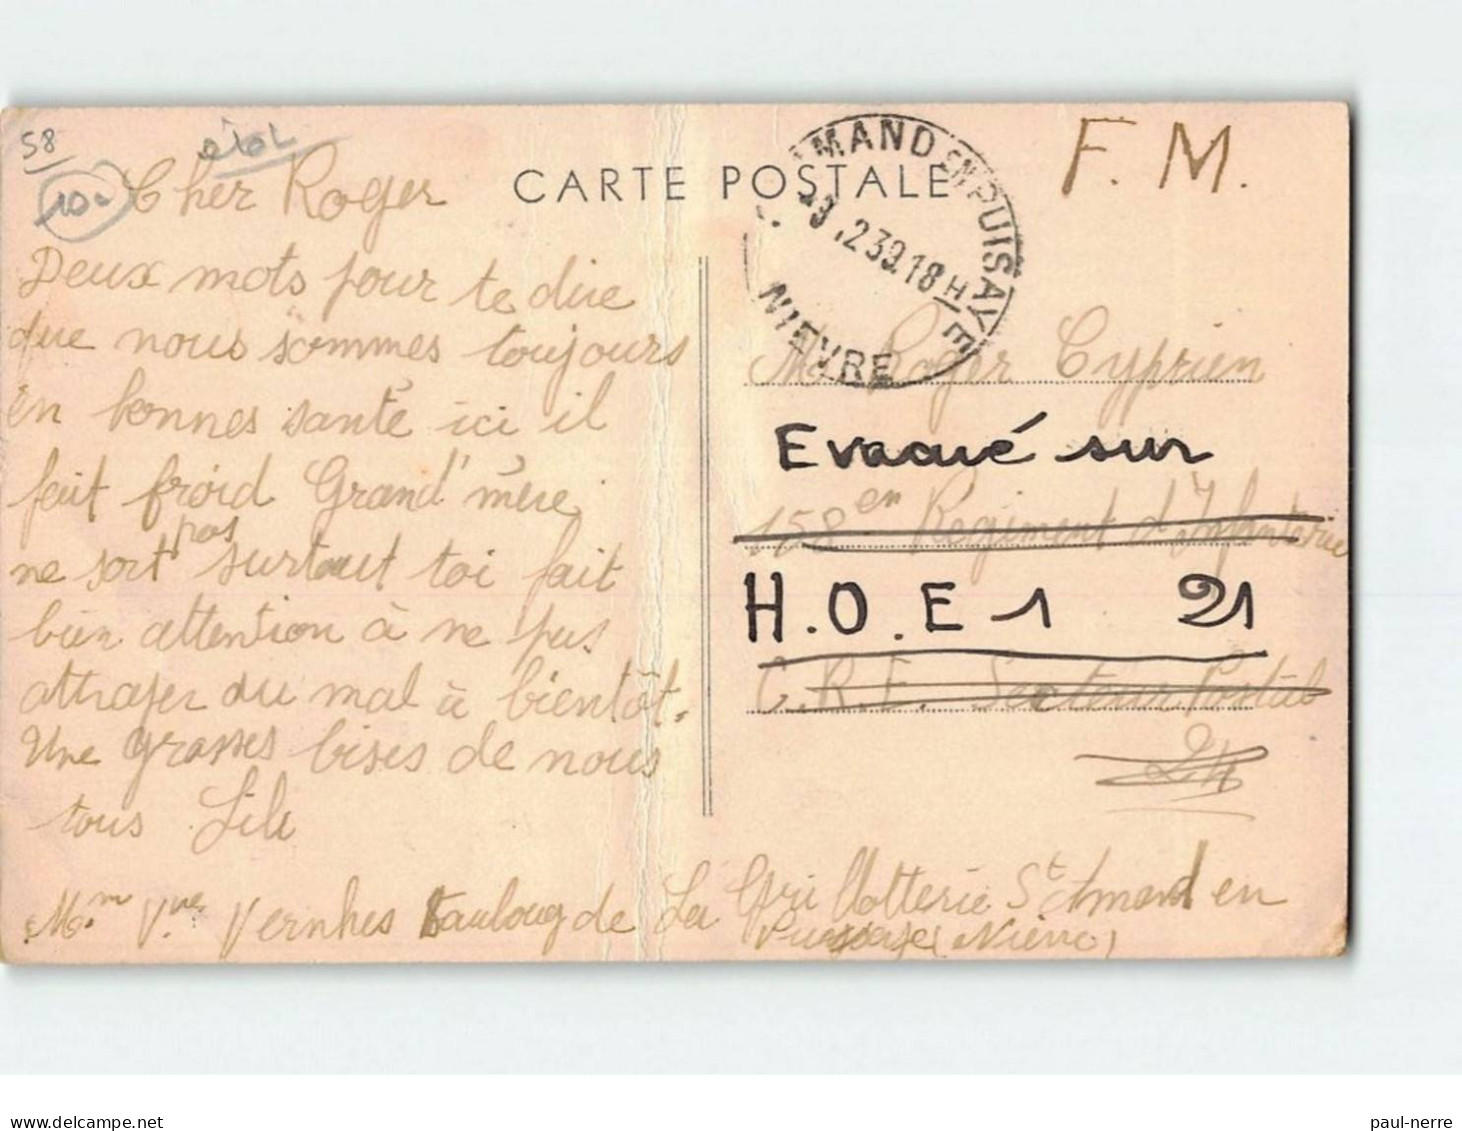 58
10
Cher Roger
Deux mots pour te dire
que nous sommes toujours
en bonnes santé ici il
fait froid Grand'mère
ne sort pas surtout toi fait
bien attention à ne pas
attraper du mal à bientôt.
Une grasses bises de nous
tous Lili
Mme Vve Vernhes de La Grillotterie St Amand en
Puisaye (Nièvre)
CARTE POSTALE
F. M.
AMAND EN PUISAYE
2 39 18 H
NIEVRE
Mr Roger Cyprien
Evacué sur
158 en Régiment d'Infanterie
H.O.E 1 21
C.R.E. Secteur Postal
24
paul-nerre